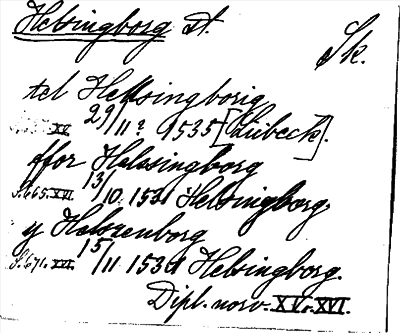 Helsingborg St.
Sk.
tel Helssingborig
XV. 29/11? 1535 [Lübeck].
ffor Helssingborg
S. 665. XVI. 13/10. 1531 Helsingborg
y Helszenborg
S. 671. XVI. 15/11 1531 Helsingborg.
Dipl. norv. XV.-XVI.